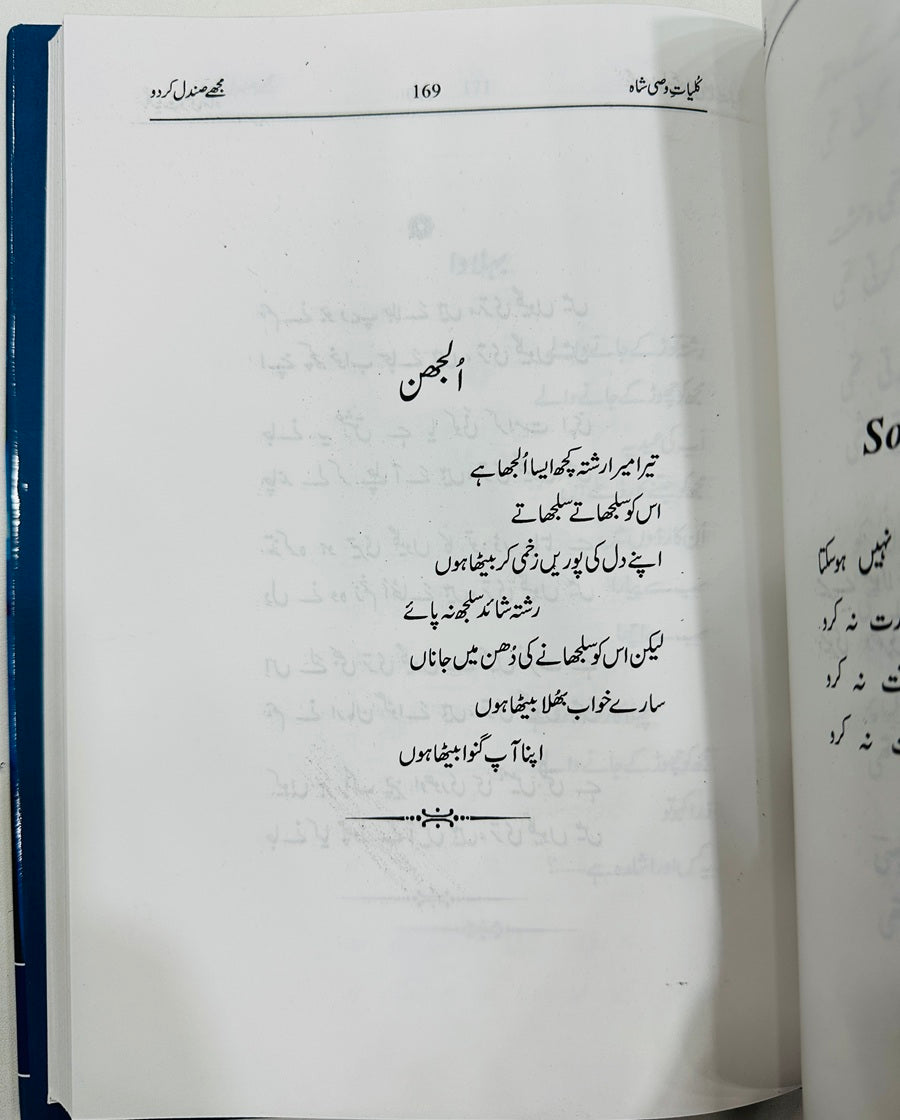 کُلیاتِ وصی شاہ 169 مجھے صندل کر دو
اُلجھن
تیرا میرا رشتہ کچھ ایسا اُلجھا ہے
اس کو سلجھاتے سلجھاتے
اپنے دل کی پوریں زخمی کر بیٹھا ہوں
رشتہ شائد سلجھ نہ پائے
لیکن اس کو سلجھانے کی دُھن میں جاناں
سارے خواب بُھلا بیٹھا ہوں
اپنا آپ گنوا بیٹھا ہوں
So
نہیں ہوسکتا
نہ کرد
نہ کرد
نہ کرد